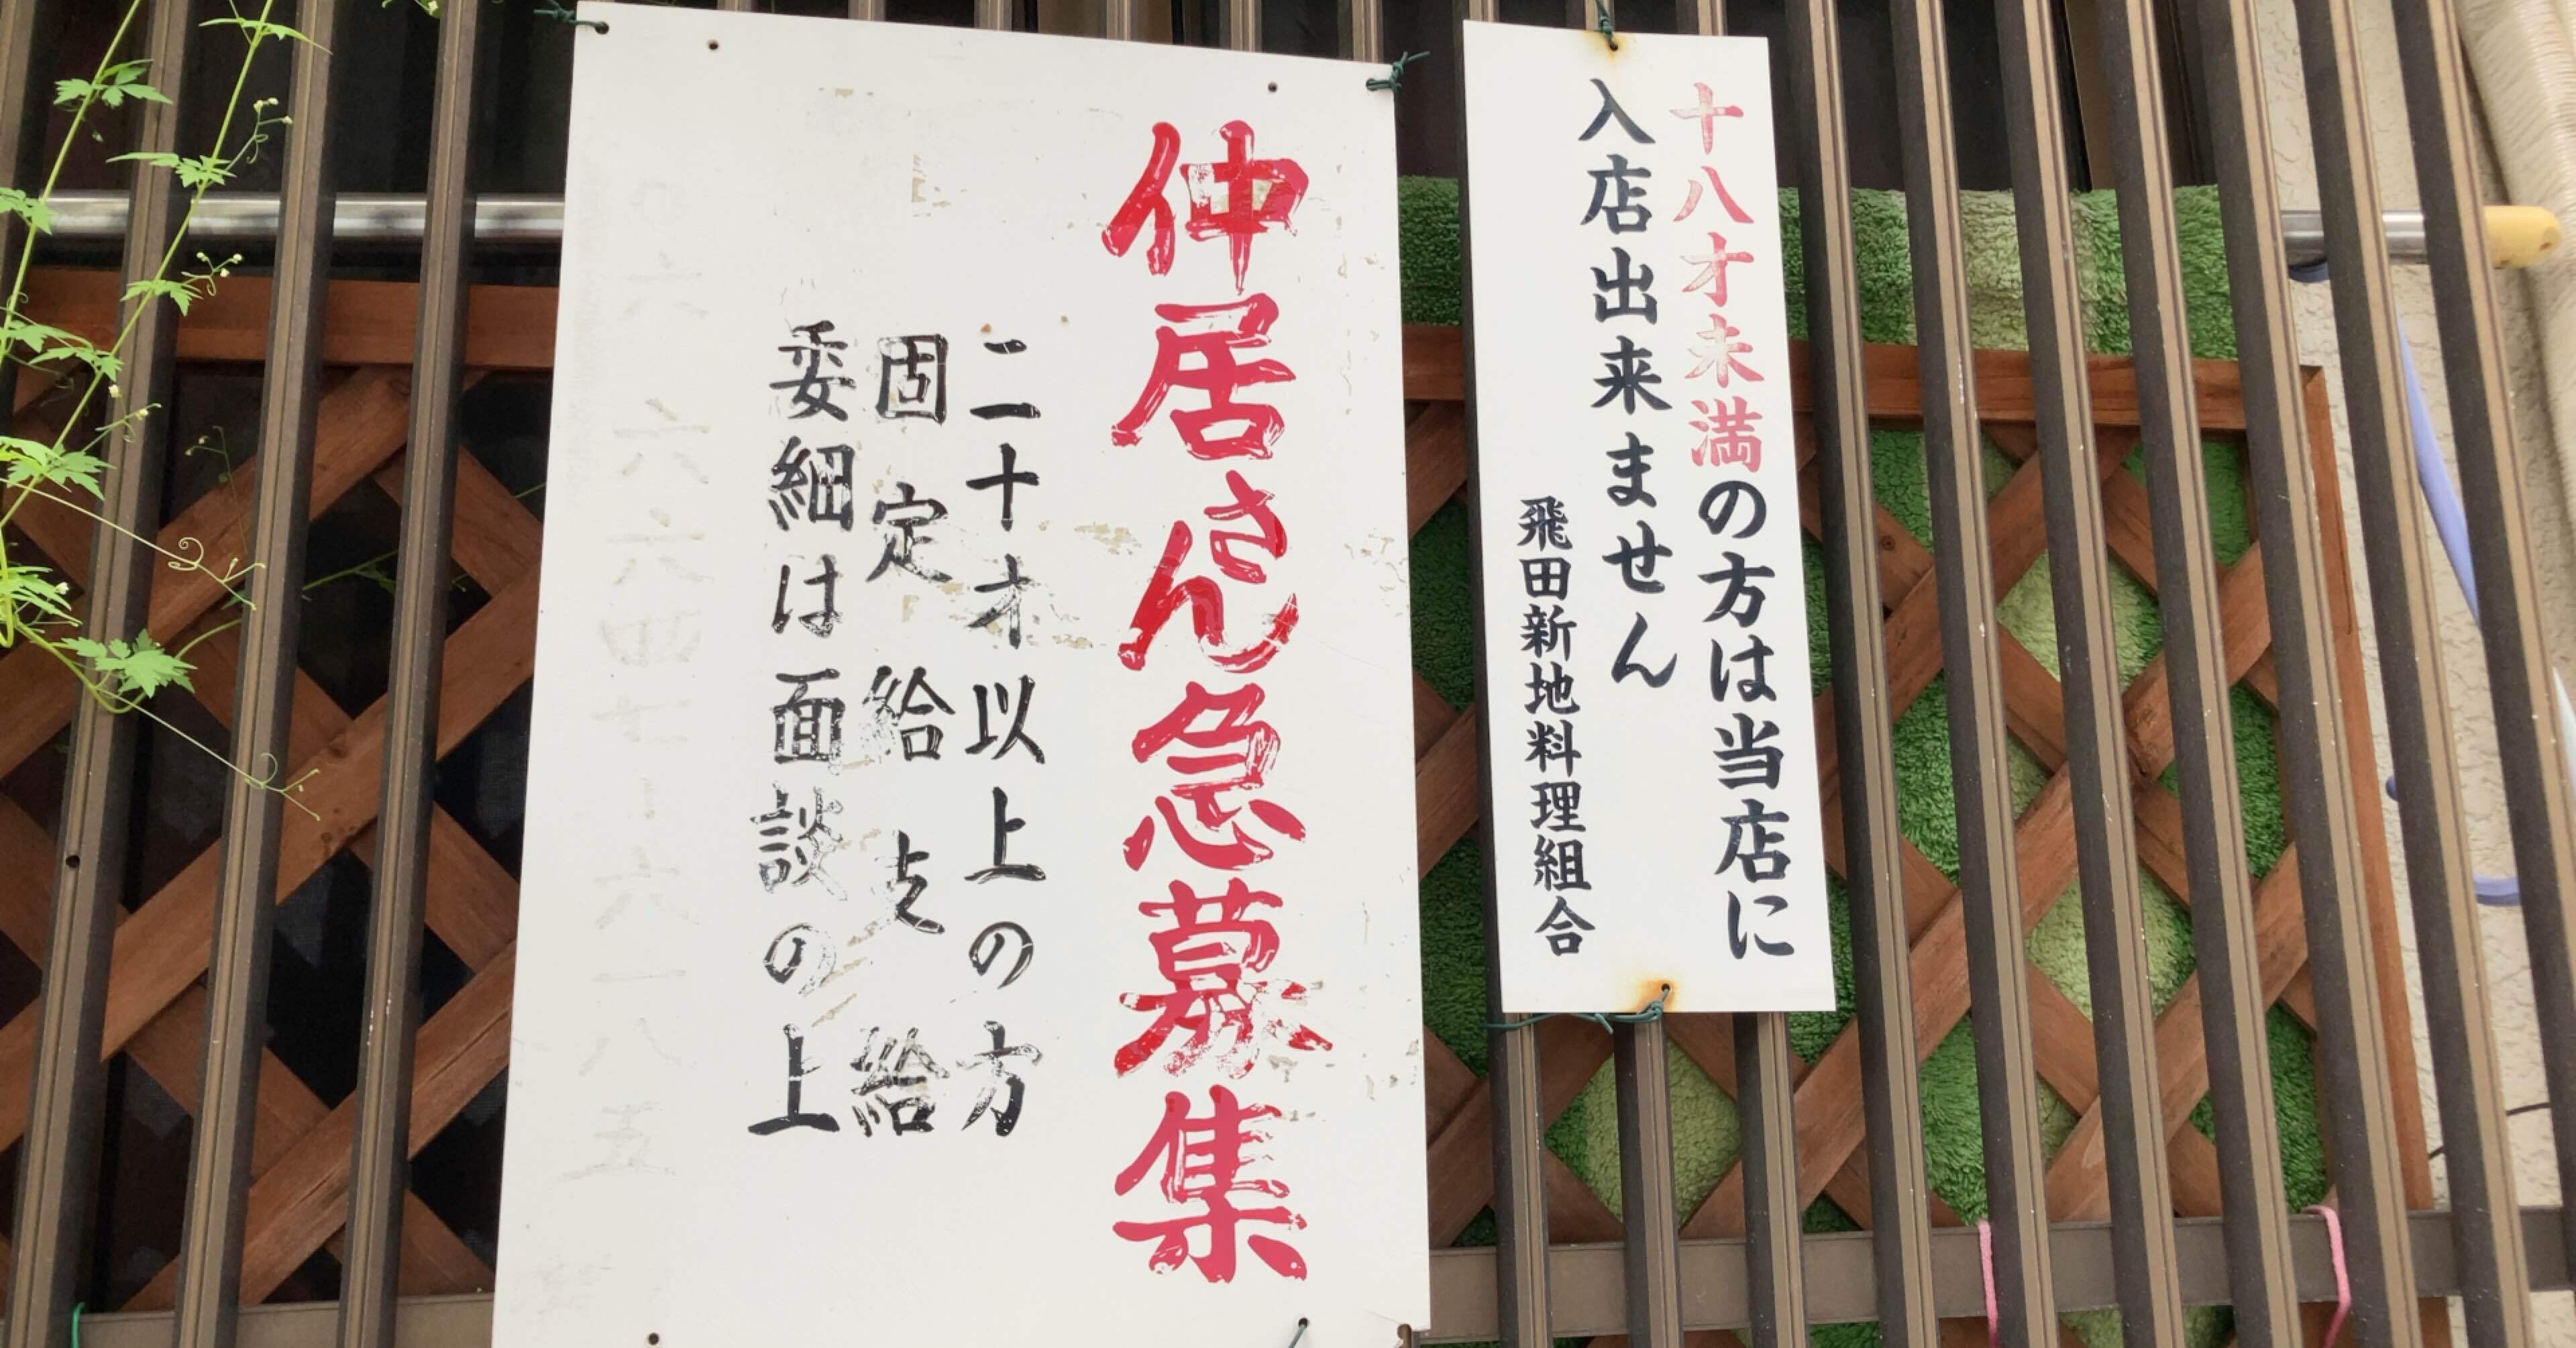 十八才未満の方は当店に
入店出来ません
飛田新地料理組合
仲居さん急募集
二十才以上の方
固定給支給
委細は面談の上